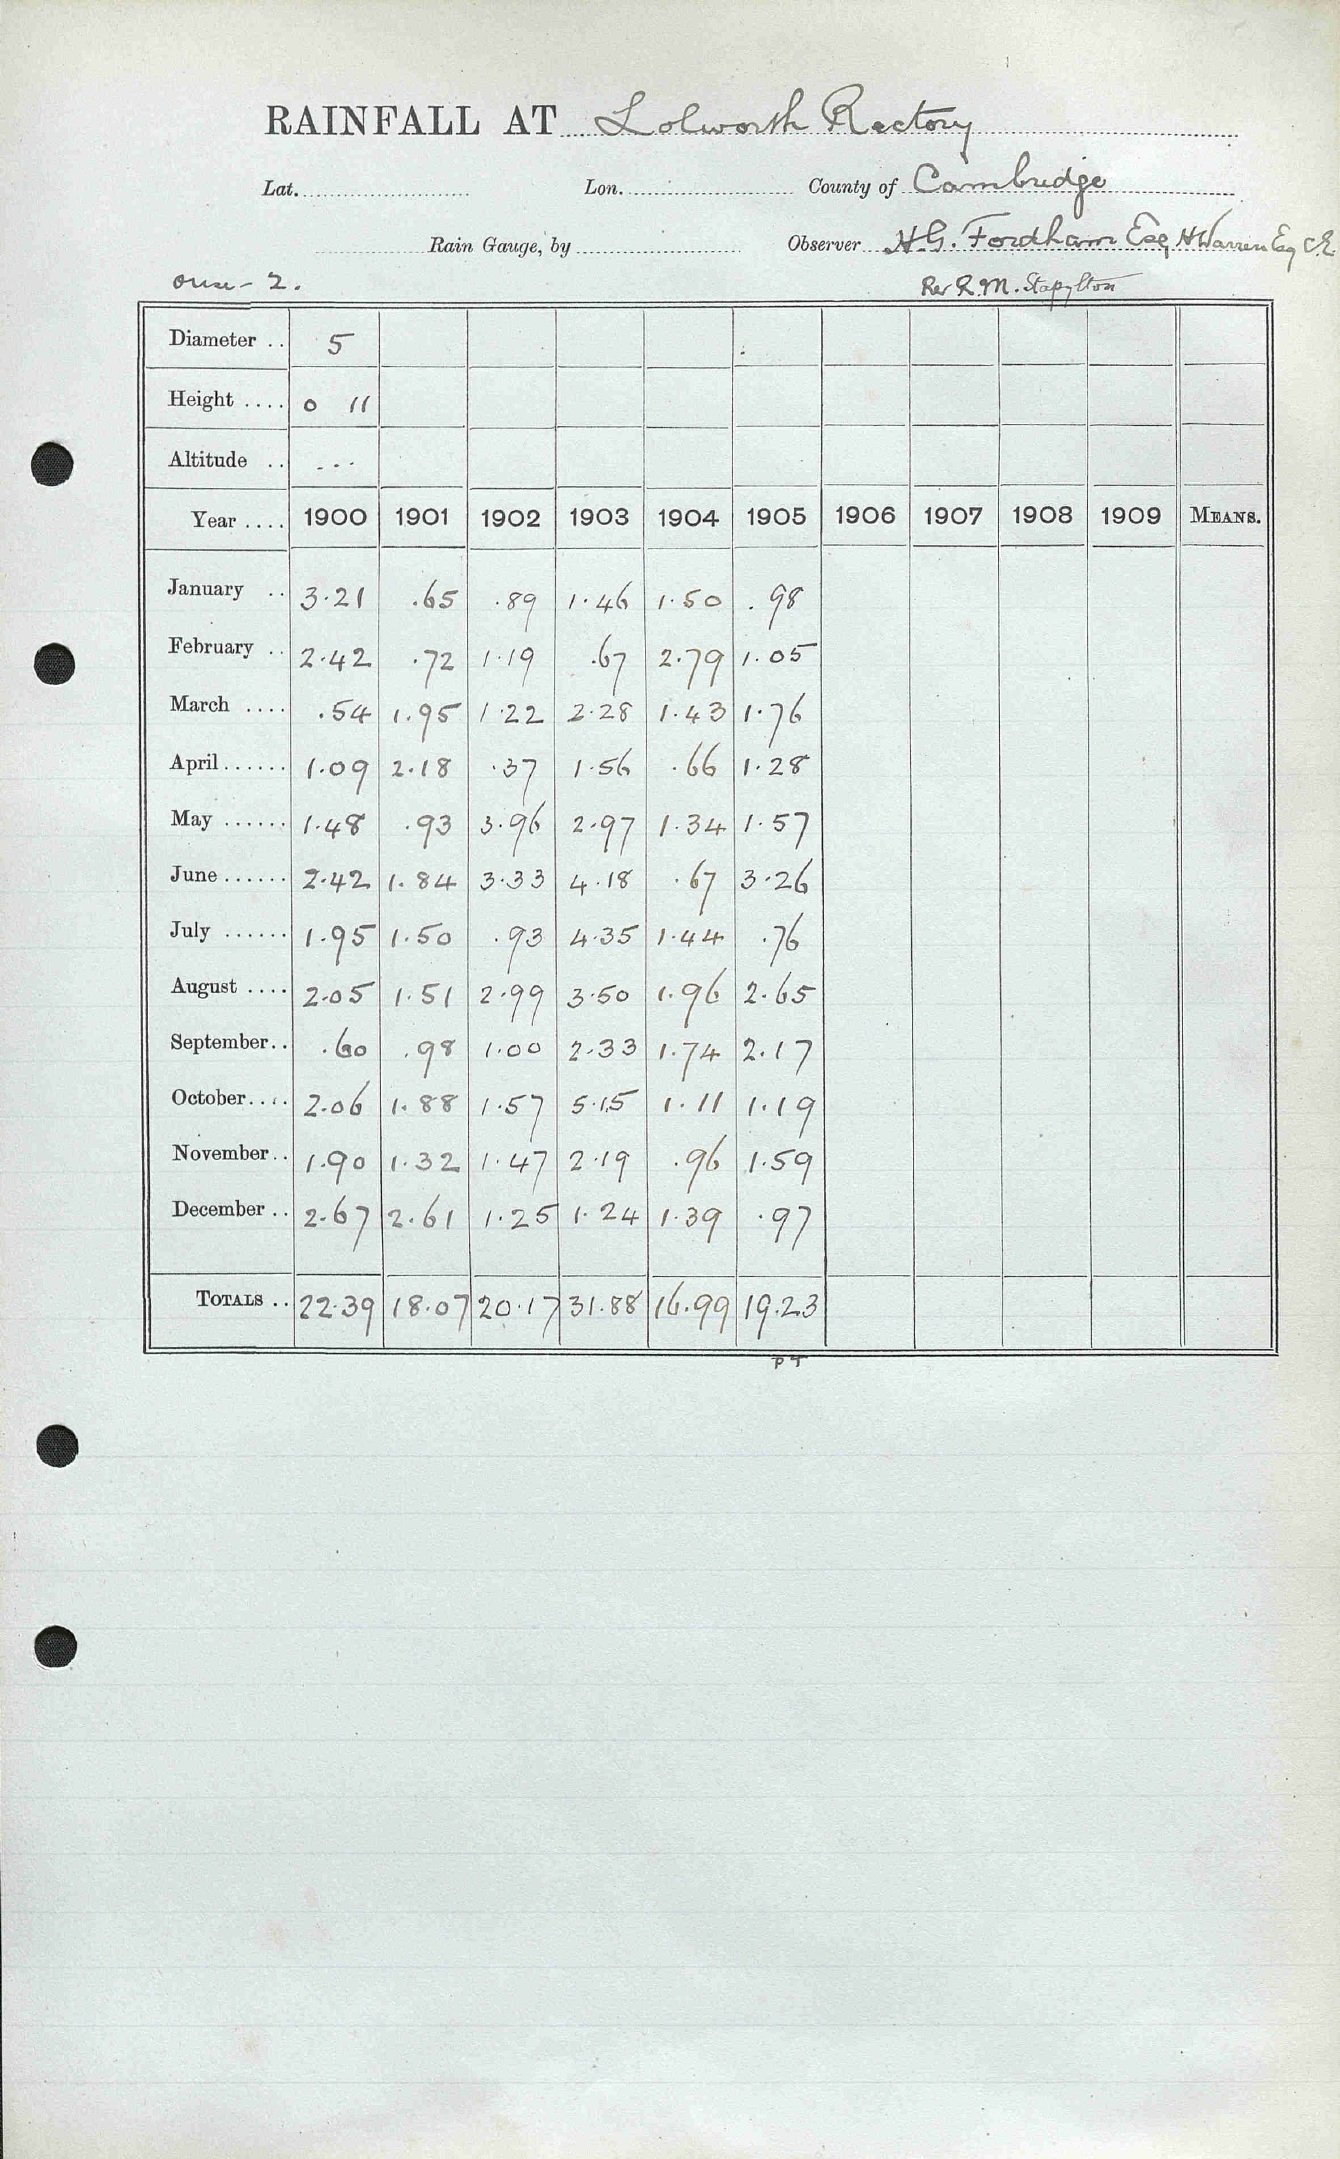 RAINFALL AT Lolworth Rectory
Lat. Lon. County of Cambridge
Rain Gauge, by Observer H.G. Fordham Esq H Warren Esq C.E
Ouse - 2. Rev R.M. Stapylton
Diameter .. 5
Height .... 0 11
Altitude .. ...
Year .... 1900 1901 1902 1903 1904 1905 1906 1907 1908 1909 MEANS.
January .. 3.21 .65 .89 1.46 1.50 .98
February .. 2.42 .72 1.19 .67 2.79 1.05
March .... .54 1.95 1.22 2.28 1.43 1.76
April ...... 1.09 2.18 .37 1.56 .66 1.28
May ...... 1.48 .93 3.96 2.97 1.34 1.57
June ...... 2.42 1.84 3.33 4.18 .67 3.26
July ...... 1.95 1.50 .93 4.35 1.44 .76
August .... 2.05 1.51 2.99 3.50 1.96 2.65
September .. .60 .98 1.00 2.33 1.74 2.17
October .... 2.06 1.88 1.57 5.15 1.11 1.19
November .. 1.90 1.32 1.47 2.19 .96 1.59
December .. 2.67 2.61 1.25 1.24 1.39 .97
TOTALS .. 22.39 18.07 20.17 31.88 16.99 19.23
PT